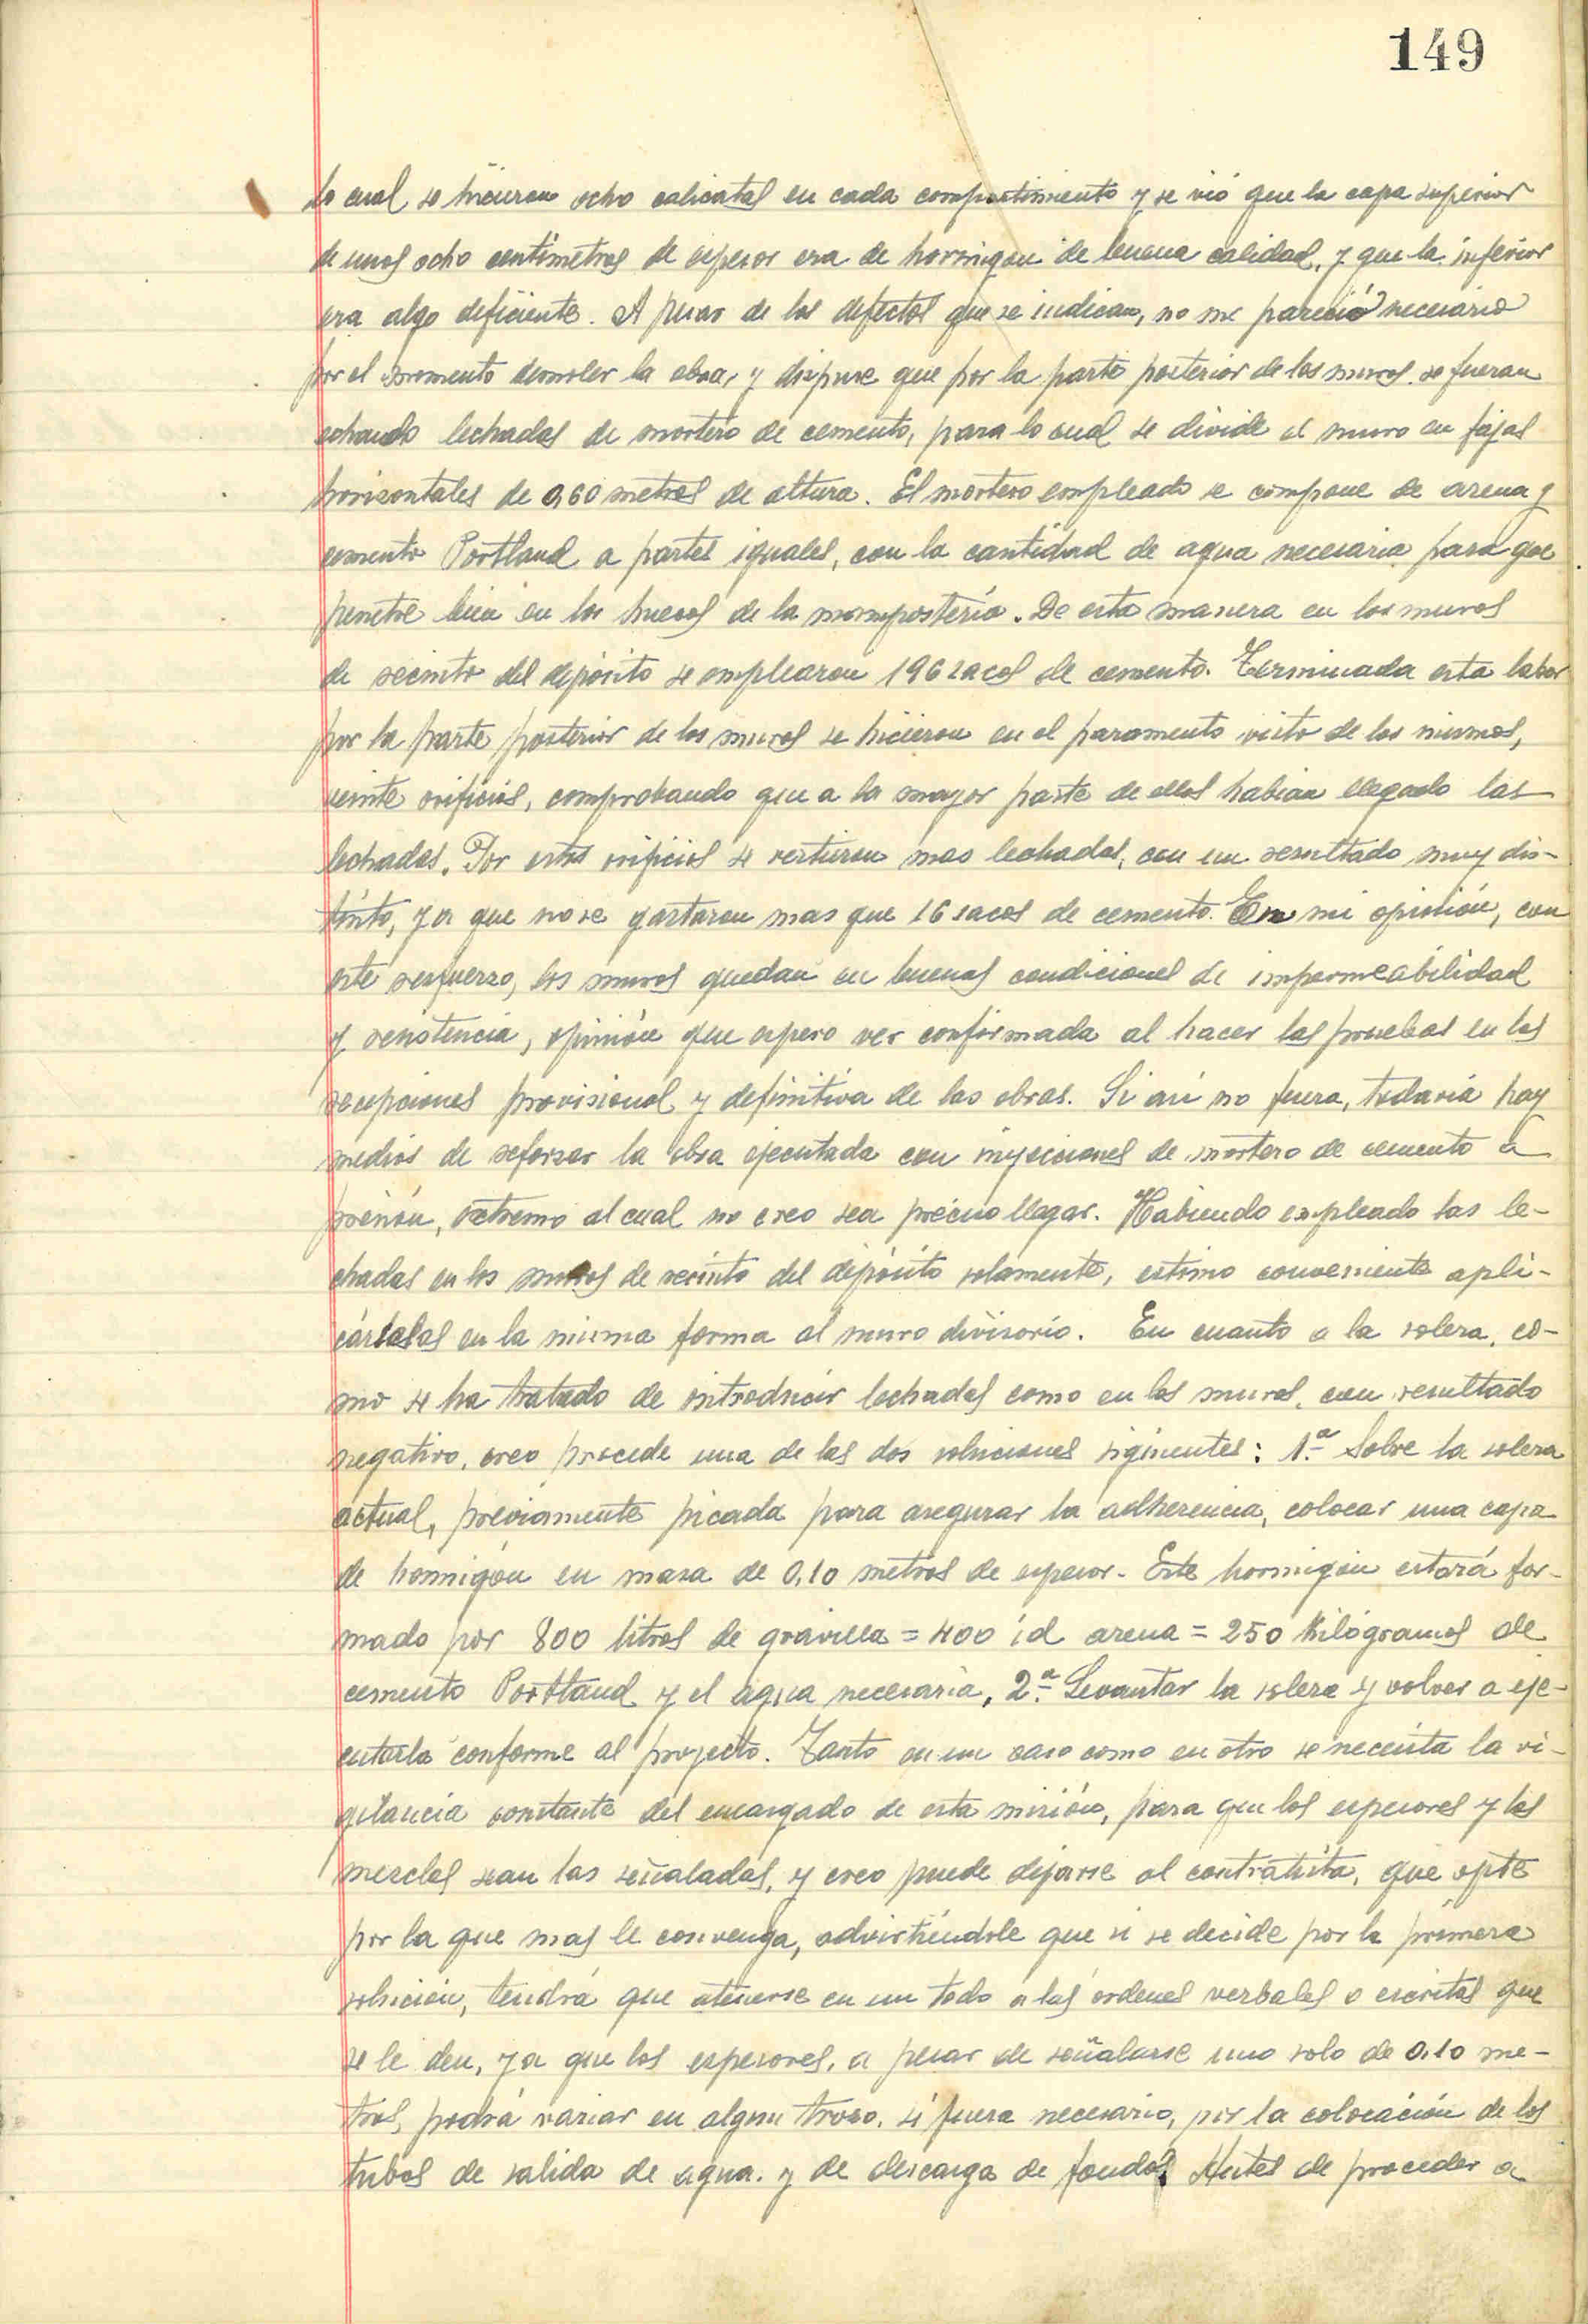 149
lo cual se hicieron ocho calicatas en cada compartimiento y se vió que la capa superior
de unos ocho centímetros de espesor era de hormigon de buena calidad, y que la inferior
era algo deficiente. A pesar de los defectos que se indican, no me pareció necesario
por el momento demoler la obra, y dispuse que por la parte posterior de los muros se fueran
echando lechadas de mortero de cemento, para lo cual se divide el muro en fajas
horizontales de 0,60 metros de altura. El mortero empleado se compone de arena y
cemento Portland a partes iguales, con la cantidad de agua necesaria para que
penetre bien en los huecos de la mampostería. De esta manera en los muros
de recinto del depósito se emplearon 196 sacos de cemento. Terminada esta labor
por la parte posterior de los muros se hicieron en el paramento visto de los mismos,
veinte orificios, comprobando que a la mayor parte de ellos habian llegado las
lechadas. Por estos orificios se vertieron mas lechadas, con un resultado muy dis-
tinto, ya que no se gastaron mas que 16 sacos de cemento. En mi opinión, con
este refuerzo, los muros quedan en buenas condiciones de impermeabilidad
y resistencia, opinión que espero ver confirmada al hacer las pruebas en las
recepciones provisional y definitiva de las obras. Si asi no fuera, todavía hay
medios de reforzar la obra ejecutada con inyecciones de mortero de cemento a
presión, extremo al cual no creo sea preciso llegar. Habiendo empleado las le-
chadas en los muros de recinto del depósito solamente, estimo conveniente apli-
cárselas en la misma forma al muro divisorio. En cuanto a la solera, co-
mo se ha tratado de introducir lechadas como en los muros, con resultado
negativo, creo procede una de las dos soluciones siguientes: 1.ª Sobre la solera
actual, previamente picada para asegurar la adherencia, colocar una capa
de hormigón en masa de 0,10 metros de espesor. Este hormigón estará for-
mado por 800 litros de gravilla = 400 id arena = 250 kilógramos de
cemento Portland y el agua necesaria, 2.ª Levantar la solera y volver a eje-
cutarla conforme al proyecto. Tanto en un caso como en otro se necesita la vi-
gilancia constante del encargado de esta misión, para que los espesores y las
mezclas sean las señaladas, y creo puede dejarse al contratista, que opte
por la que mas le convenga, advirtiéndole que si se decide por la primera
solución, tendrá que atenerse en un todo a las órdenes verbales o escritas que
se le den, ya que los espesores, a pesar de señalarse uno solo de 0,10 me-
tros, podrá variar en algun trozo, si fuera necesario, por la colocación de los
tubos de salida de agua. y de descarga de fondos. Antes de proceder a